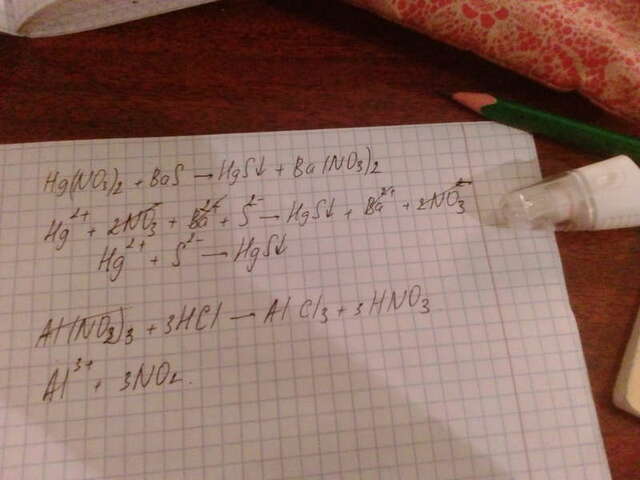 Hg(NO3)2 + BaS → HgS↓ + Ba(NO3)2
Hg²⁺ + 2NO3⁻ + Ba²⁺ + S²⁻ → HgS↓ + Ba²⁺ + 2NO3⁻
Hg²⁺ + S²⁻ → HgS↓
Al(NO3)3 + 3HCl → AlCl3 + 3HNO3
Al³⁺ + 3NO2